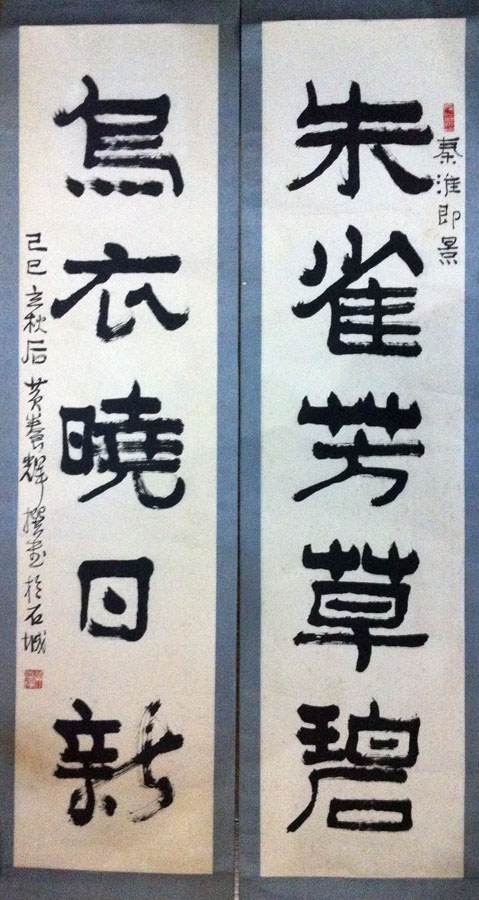 秦淮即景
朱雀芳草碧
烏衣曉日新
己巳立秋后黄養輝撰書於石城